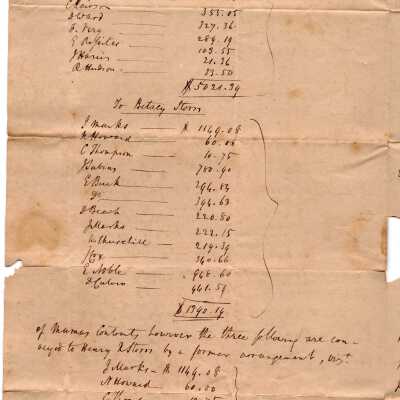 Clawson 353.05
D Ward 327.36
F. Very 289.19
G Rossiter 103.55
J Harris 21.36
R Hudson 23.50
$5021.39
To Betsey Storrs
J Marks $ 1149.08
N Howard 60.00
C Thompson 10.75
J Sabins 780.90
E Buck 294.83
Do 394.63
D Beach 220.80
J Marks 222.15
Churchill 219.39
J Cox 340.66
E Noble 948.60
D Culver 441.59
of Mamas Contracts however the three following are con-
veyed to Henry R Storrs by a former arrangement, viz.
J Marks - $ 1149.08
N Howard 60.00